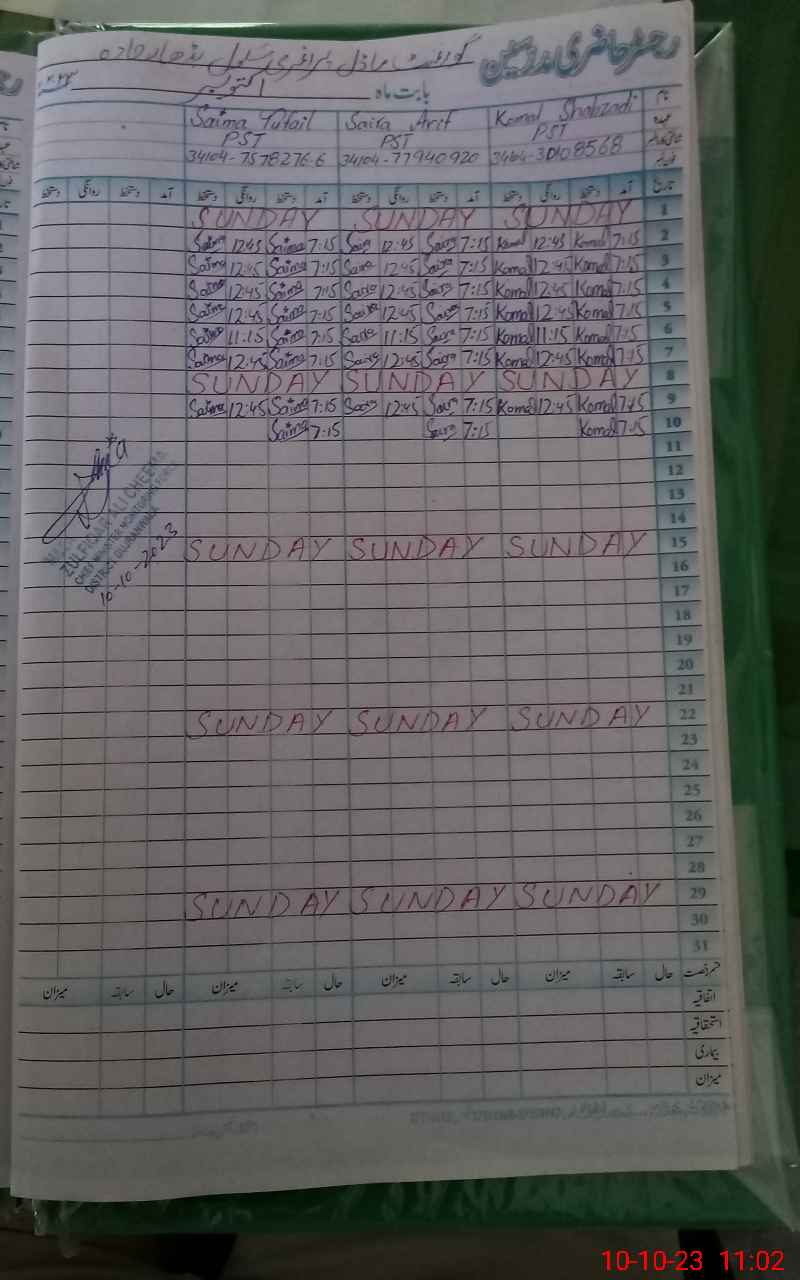 رجسٹر حاضری مدرسین
گورنمنٹ ماڈل پرائمری سکول
بابت ماہ اکتوبر
نام Komal Shahzadi Saira Arif Saima Tufail
عہدہ PST PST PST
34104-7578276-6 34104-77940920 34104-30108568
تاریخ آمد دستخط روانگی دستخط آمد دستخط روانگی دستخط آمد دستخط روانگی دستخط آمد دستخط روانگی دستخط
SUNDAY SUNDAY SUNDAY 1
Saima 12:45 Saima 7:15 Saira 12:45 Saira 7:15 Komal 12:45 Komal 7:15 2
Saima 12:45 Saima 7:15 Saira 12:45 Saira 7:15 Komal 12:45 Komal 7:15 3
Saima 12:45 Saima 7:15 Saira 12:45 Saira 7:15 Komal 12:45 Komal 7:15 4
Saima 12:45 Saima 7:15 Saira 12:45 Saira 7:15 Komal 12:45 Komal 7:15 5
Saima 11:15 Saima 7:15 Saira 11:15 Saira 7:15 Komal 11:15 Komal 7:15 6
Saima 12:45 Saima 7:15 Saira 12:45 Saira 7:15 Komal 12:45 Komal 7:15 7
SUNDAY SUNDAY SUNDAY 8
Saima 12:45 Saima 7:15 Saira 12:45 Saira 7:15 Komal 12:45 Komal 7:15 9
Saima 7:15 Saira 7:15 Komal 7:15 10
11
12
13
14
SUNDAY SUNDAY SUNDAY 15
16
17
18
19
20
21
SUNDAY SUNDAY SUNDAY 22
23
24
25
26
27
28
SUNDAY SUNDAY SUNDAY 29
30
31
ZULFIQAR ALI CHEEMA
CHIEF MINISTER MONITORING FORCE
DISTRICT GUJRANWALA
10-10-2023
قسم رخصت حال سابقہ میزان حال سابقہ میزان حال سابقہ میزان حال سابقہ میزان
اتفاقیہ
استحقاقیہ
بیماری
میزان
10-10-23 11:02